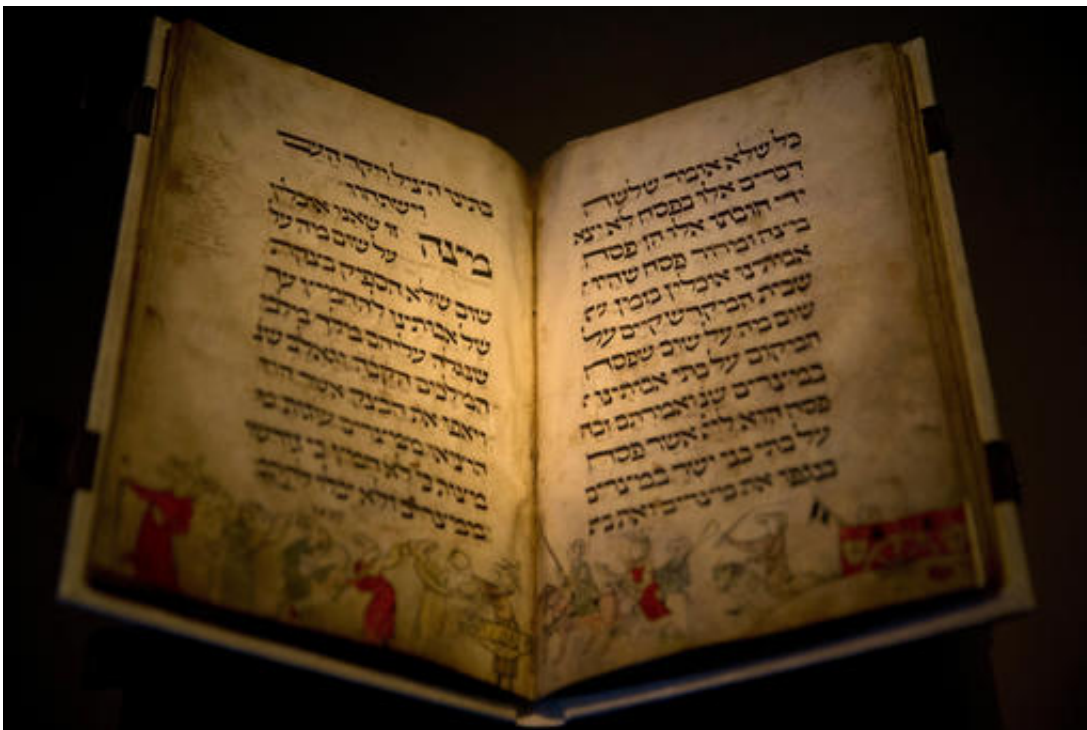 כל שלא אומר שלשה
דברים אלו בפסח לא יצא
ידי חובתו אלו הן פסח
מצה ומרור פסח שהיו
אבותינו אוכלין בזמן
שבית המקדש קיים על
שום מה על שום שפסח
המקום על בתי אבותינו
במצרים שנ ואמרתם זבח
פסח הוא ליי אשר פסח
על בתי בני ישר במצרים
בנגפו את מצרים ואת בת
בתינו הציל ויקד העם
וישתחוו
מצה זו שאנו אוכלין
על שום מה על
שום שלא הספיק בצקת
של אבותינו להחמיץ עד
שנגלה עליהם מלך מלכי
המלכים הקבה וגאלם שנ
ויאפו את הבצק אשר
הוציאו ממצרים עוגות
מצות כי לא חמץ כי גורשו
ממצרים ולא יכלו